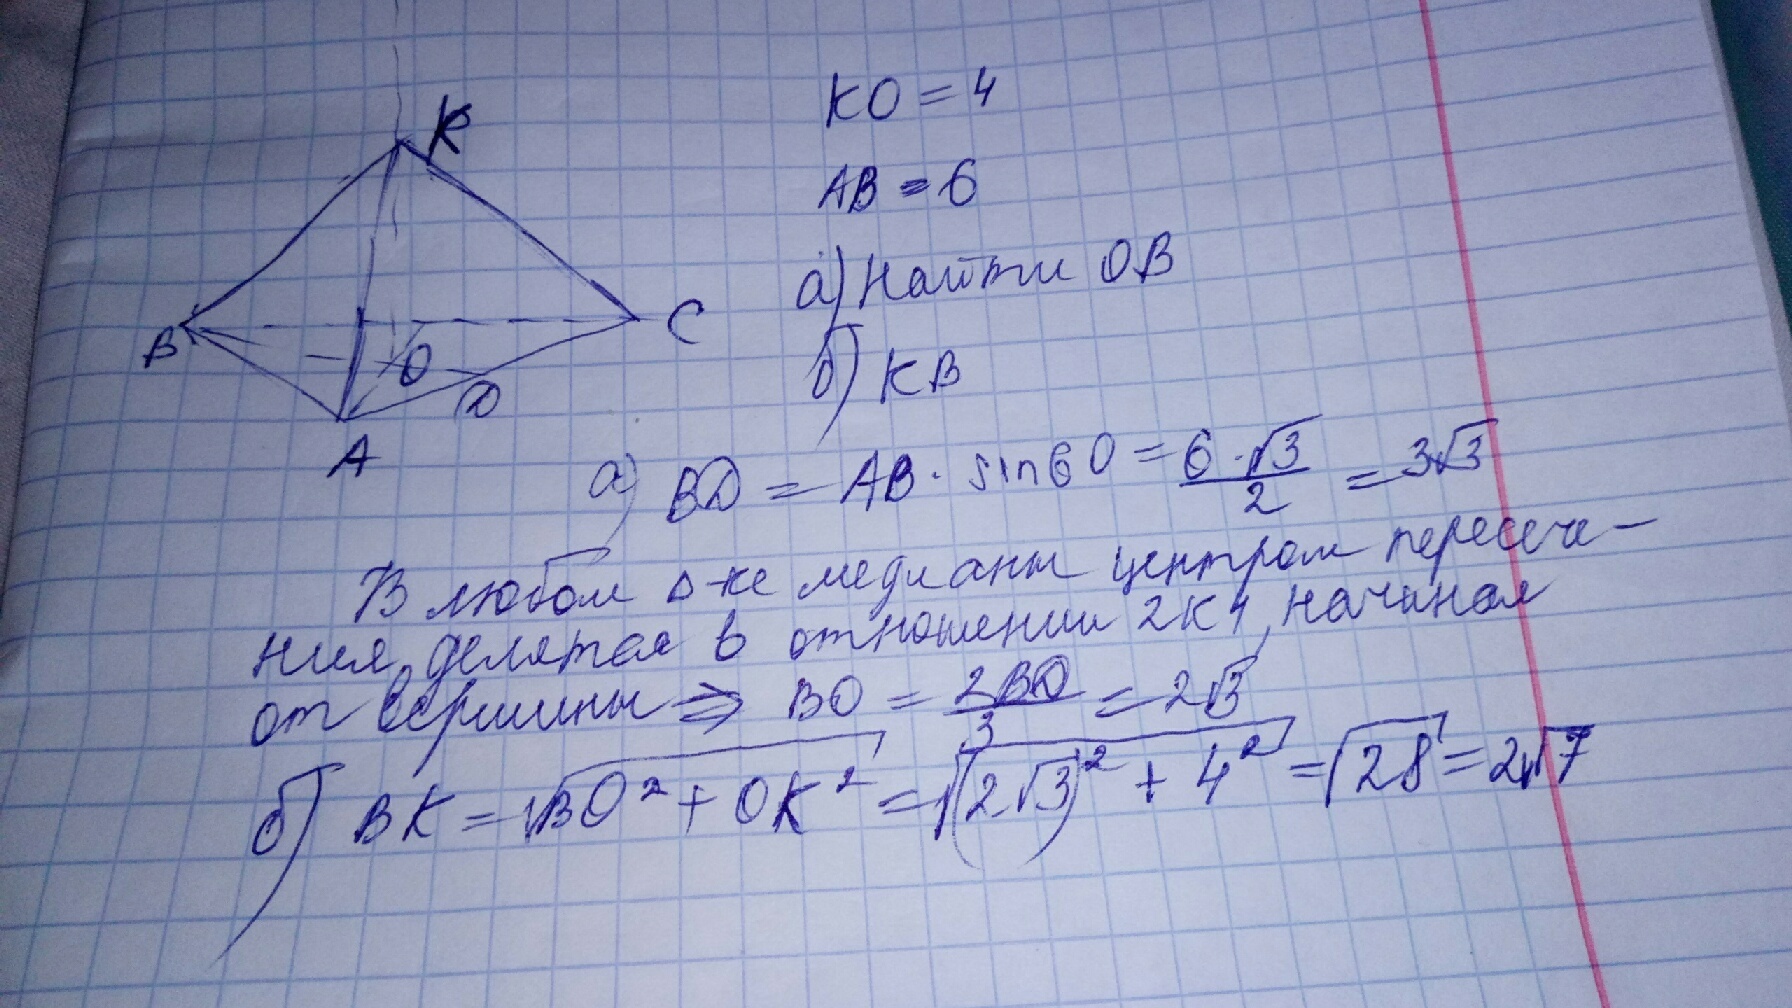 K
B
C
O
D
A
KO = 4
AB = 6
а) Найти OB
б) KB
а) BD = AB · sin60 = 6·√3/2 = 3√3
В любом Δ-ке медианы центром пересече-
ния, делятся в отношении 2к1, начиная
от вершины ⇒ BO = 2BD/3 = 2√3
б) BK = √BO² + OK² = √(2√3)² + 4² = √28 = 2√7